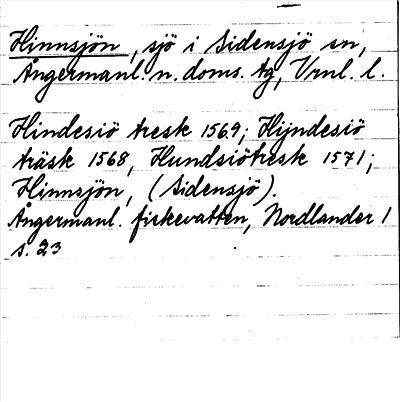 Hinnsjön, sjö i Sidensjö sn,
Ångermanl. n. doms. tg, Vrnl. l.
Hindesiö tresk 1569; Hijndesiö
träsk 1568, Hundsiötresk 1571;
Hinnsjön, (Sidensjö).
Ångermanl. fiskevatten, Nordlander 1
s. 23